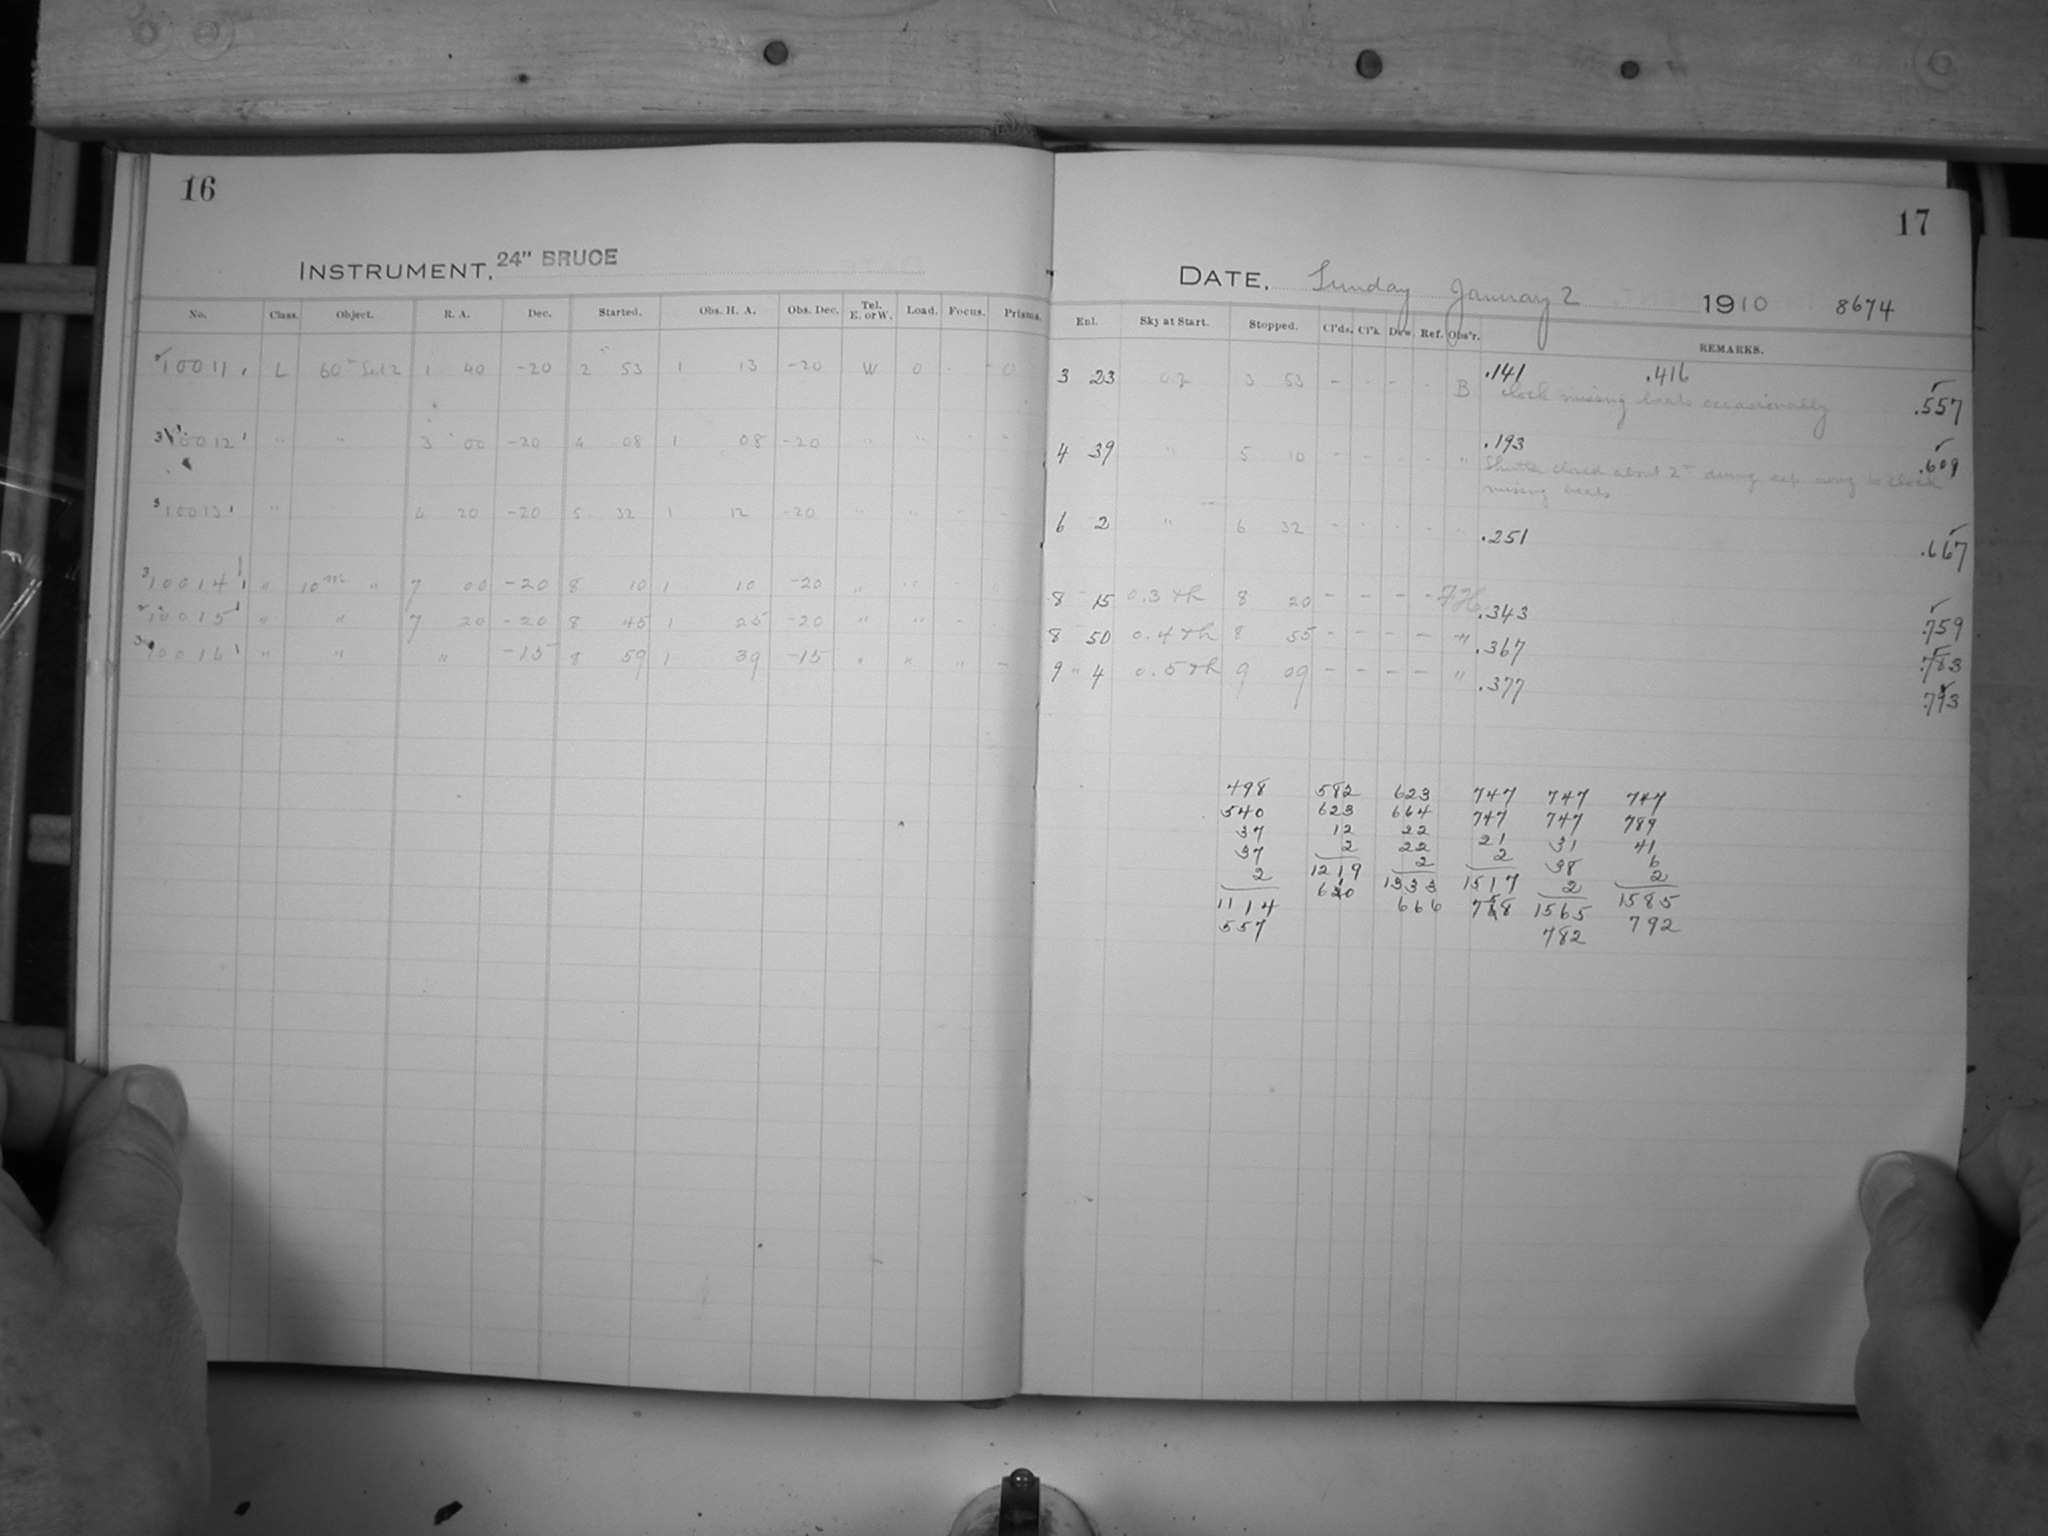 16
INSTRUMENT. 24" BRUCE
No. Class. Object. R. A. Dec. Started. Obs. H. A. Obs. Dec. Tel. E. or W. Load. Focus. Prisms.
10011 L 60m Sel 2 1 40 -20 2 53 1 13 -20 W 0 - - 0
10012 " " 3 00 -20 4 08 1 08 -20 " " " "
10013 " 4 20 -20 5 32 1 12 -20 " " - -
10014 " 10m " 7 00 -20 8 10 1 10 -20 " " - "
10015 " " 7 20 -20 8 45 1 25 -20 " " -
10016 " " " -15 8 59 1 39 -15 " " " -
17
DATE. Sunday January 2 1910 8674
Enl. Sky at Start. Stopped. Cl'ds. Cl'k Dew. Ref. Obs'r. REMARKS.
3 23 3 53 - - - - B .141 .416
Clock missing beats occasionally .557
4 39 " 5 10 - - - - " .193 .609
Shutter closed about 2m during exp. owing to clock
missing beats
6 2 " 6 32 - - - - " .251 .667
8 15 0.3 8 20 - - - - .343 .759
8 50 0.4 8 55 - - - - " .367 .783
9 4 0.5 9 09 - - - - " .377 .793
498 582 623 747 747 747
540 623 664 747 747 789
37 12 22 21 31 41
37 2 22 2 38 6
2 1219 2 1517 2 2
1114 620 1333 758 1565 1585
557 666 782 792